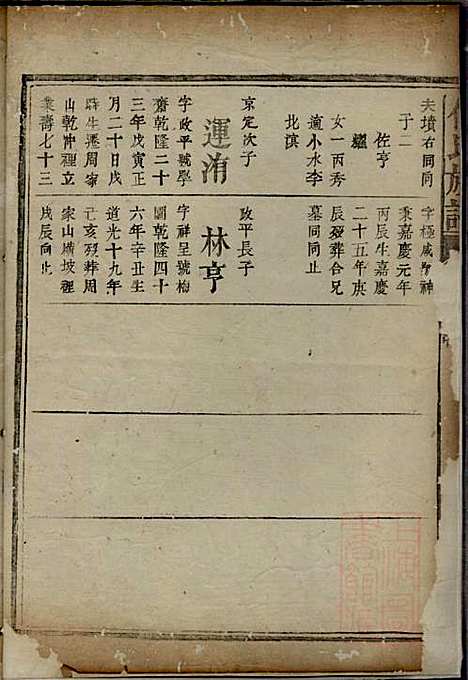 夫墳右同向
于二
佐亨
繼
女一丙秀
適小水李
北滇
京定次子
運洧
字政平號學
齋乾隆二十
三年戊寅正
月二十日戌
時生遷周家
山乾冲裡立
業壽七十三
字極咸
秉嘉慶元年
丙辰生嘉慶
二十五年庚
辰歿葬合兄
墓同同止
政平長子
林亨
字祥呈號梅
圃乾隆四十
六年辛丑生
道光十九年
己亥歿葬周
家山橫坡裡
戊辰向止
氏族譜